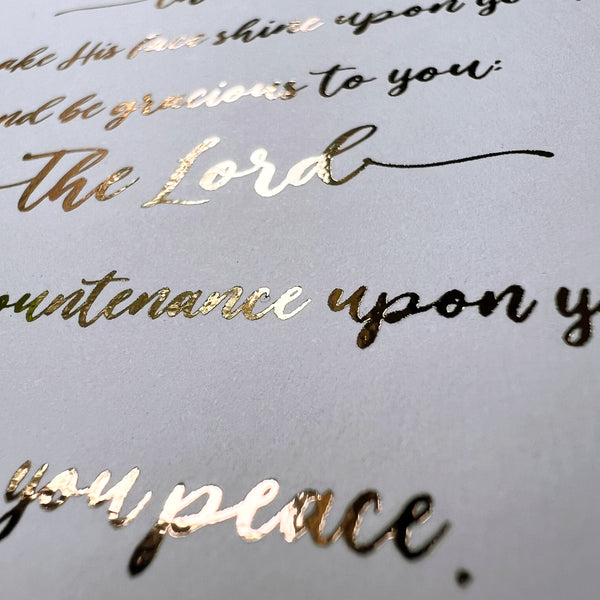 ake His face shine upon yo
nd be gracious to you:
The Lord
ountenance upon y
you peace.